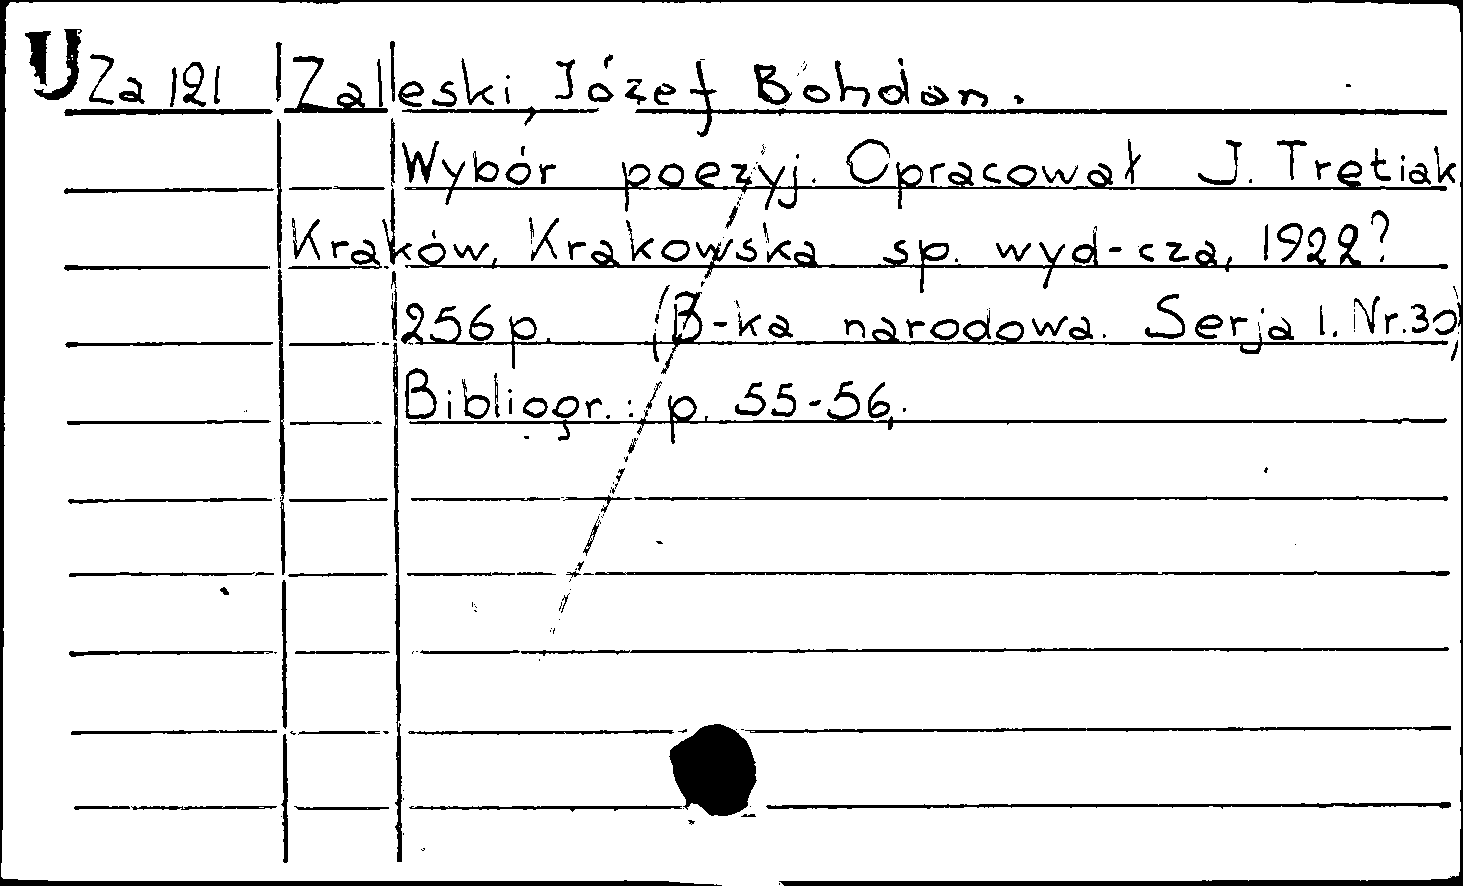 U Za 121 Zaleski, Józef Bohdan.
Wybór poezyj. Opracował J. Tretiak
Kraków, Krakowska sp. wyd-cza, 1922?
256 p. (B-ka narodowa. Serja I. Nr. 30)
Bibliogr.: p. 55-56,.